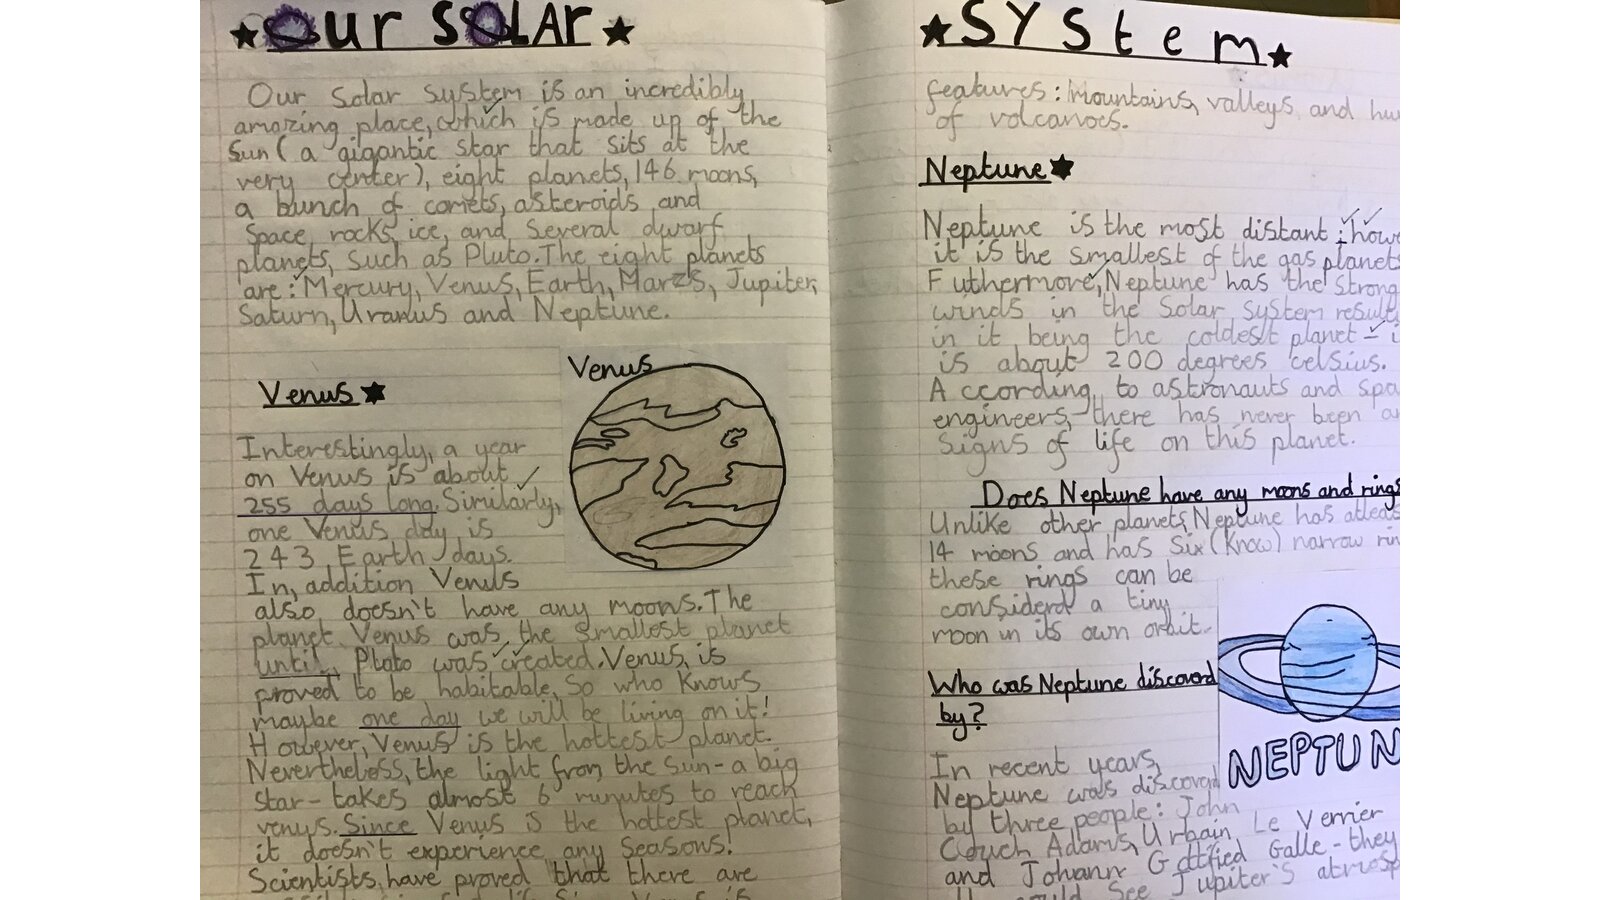 OUr SOLAr
Our Solar system is an incredibly
amazing place, which is made up of the
Sun ( a gigantic star that sits at the
very center), eight planets, 146 moons,
a bunch of comets, asteroids and
Space rocks, ice, and Several dwarf
planets, such as Pluto. The eight planets
are: Mercury, Venus, Earth, Mars, Jupiter,
Saturn, Uranus and Neptune.
Venus
Venus
Interestingly, a year
on Venus is about
255 days long. Similarly,
one Venus day is
243 Earth days.
In, addition Venus
also doesn't have any moons. The
planet Venus was the smallest planet
until, Pluto was created. Venus, is
proved to be habitable, So who knows
maybe one day we will be living on it!
However, Venus is the hottest planet.
Nevertheless, the light from the sun - a big
star - takes almost 6 minutes to reach
venus. Since Venus is the hottest planet,
it doesn't experience any seasons!
Scientists, have proved that there are
SYStem
features: mountains, valleys and
of volcanoes.
Neptune
Neptune is the most distant ; howe
it is the smallest of the gas planets
Futhermore, Neptune has the strong
winds in the Solar System result
in it being the coldest planet - i
is about 200 degrees celsius.
According, to astronauts and spa
engineers, there has never been a
Signs of life on this planet.
Does Neptune have any moons and rings
Unlike other planets, Neptune has atleas
14 moons and has Six (know) narrow rin
these rings can be
considerd a tiny
moon in its own orbit.
Who was Neptune discoverd
by?
NEPTUN
In recent years,
Neptune was discoverd
by three people: John
Couch Adams, Urbain Le Verrier
and Johann Gottfied Galle - they
See Jupiter's atmosp